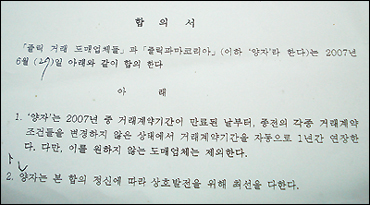 합 의 서
「쥴릭 거래 도매업체들」과「쥴릭파마코리아」(이하 '양자'라 한다)는 2007년
6월 (29)일 아래와 같이 합의 한다
아 래
1. '양자'는 2007년 중 거래계약기간이 만료된 날부터, 종전의 각종 거래계약
조건들을 변경하지 않은 상태에서 거래계약기간을 자동으로 1년간 연장한
다. 다만, 이를 원하지 않는 도매업체는 제외한다.
2. 양자는 본 합의 정신에 따라 상호발전을 위해 최선을 다한다.